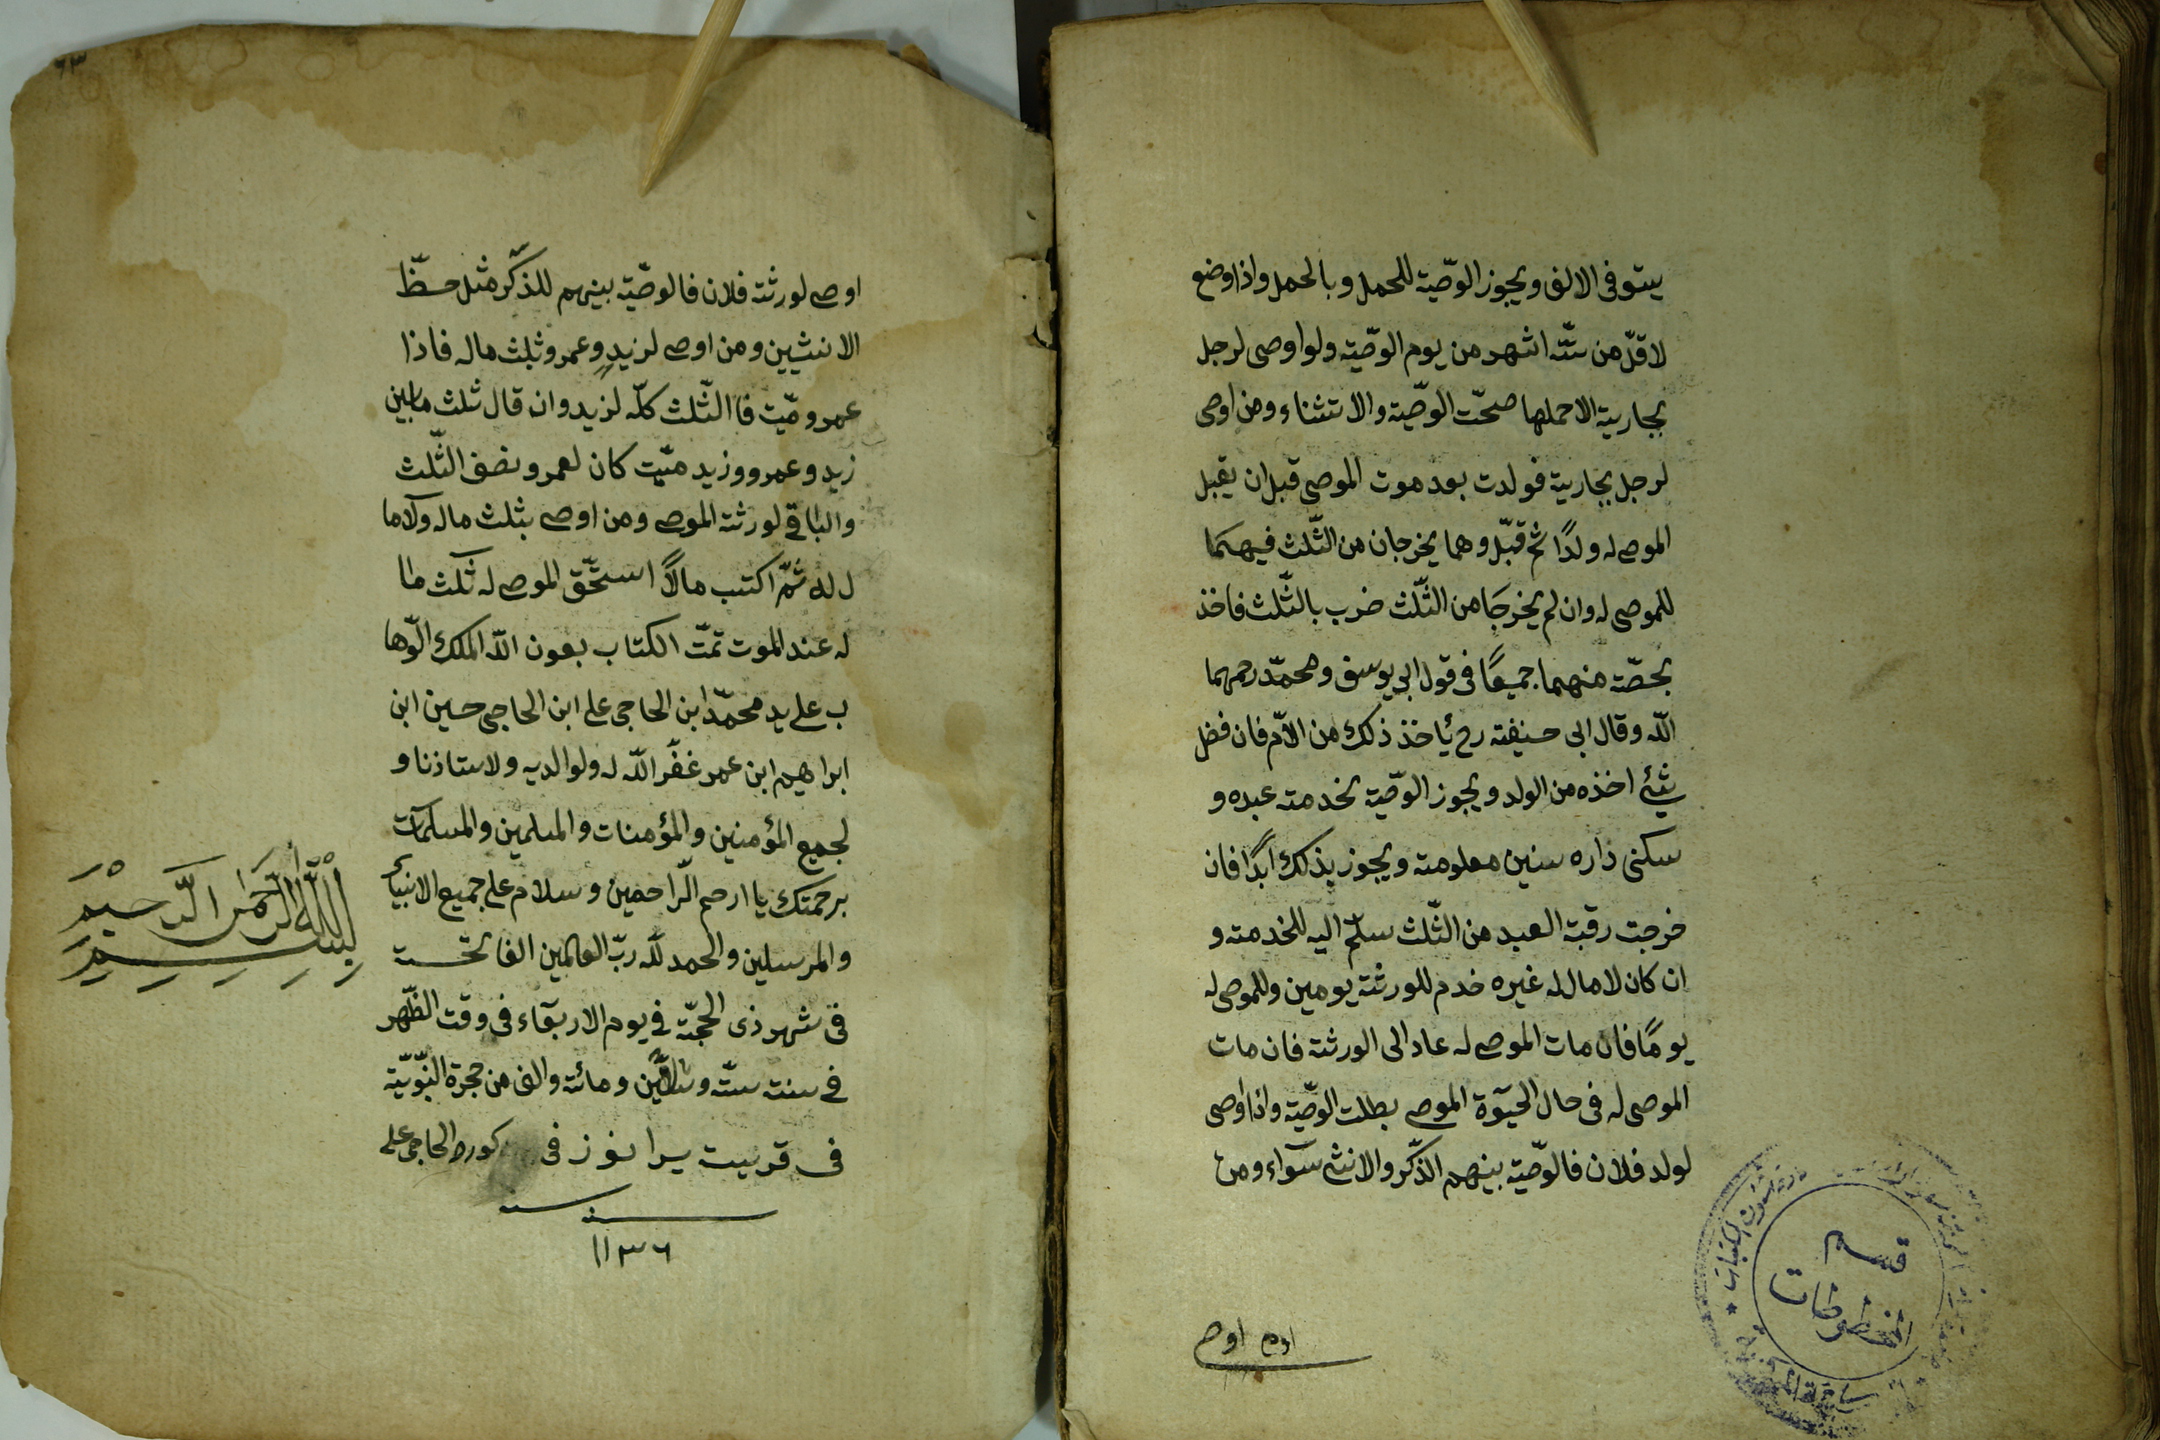 يستوفى الالف ويجوز الوصّية للحمل وبالحمل واذا وضع
لاقلّ من ستّة اشهر من يوم الوصّية ولو اوصى لرجل
بجارية الا حملها صحّت الوصّية والاستثناء ومن اوصى
لرجل بجارية فولدت بعد موت الموصى قبل ان يقبل
الموصى له ولدًا ثم قبّل وهما يخرجان من الثّلث فيهما
للموصى له وان لم يخرجا من الثّلث ضرب بالثّلث فاخذ
بحصّة منهما جميعًا فى قول ابى يوسف ومحمّد رحمهما
اللّه وقال ابى حنيفة رح يأخذ ذلك من الأمّ فان فضل
شئ اخذه من الولد ويجوز الوصّية بخدمة عبده و
سكنى داره سنين معلومة ويجوز بذلك ابدًا فان
خرجت رقبة العبد من الثّلث سلّم اليه للخدمة و
ان كان لا مال له غيره خدم للورثة يومين وللموصى له
يومًا فان مات الموصى له عاد الى الورثة فان مات
الموصى له فى حال الحيوة الموصى بطلت الوصّية واذا اوصى
لولد فلان فالوصّية بينهم الذّكر والانثى سوآء ومن
اوصى
قسم
المخطوطات
٦٣
اوصى لورثة فلان فالوصّية بينهم للذّكر مثل حظّ
الانثيين ومن اوصى لزيدٍ وعمرو ثلث ماله فاذا
عمرو ميّت فاالثّلث كلّه لزيد وان قال ثلث ما بين
زيد وعمرو وزيد ميّت كان لعمرو نصف الثّلث
والباقى لورثة الموصى ومن اوصى بثلث ماله ولا ما
ل له ثمّ اكتسب مالًا استحّق الموصى له ثلث ما
له عند الموت تمّت الكتاب بعون اللّه الملك الوّها
ب على يد محمّد ابن الحاجى على ابن الحاجى حسين ابن
ابراهيم ابن عمر غفّر اللّه له ولوالديه ولاستاذنا و
لجميع المؤمنين والمؤمنات والمسلمين والمسلمات
برحمتك يا ارحم الرّاحمين وسلام على جميع الانبيآء
والمرسلين والحمد للّه ربّ العالمين الفاتحة
فى شهر ذى الحجّة فى يوم الاربعآء فى وقت الظّهر
فى سنة ستّة وثلاثين ومائة والف من هجرة النّبوّية
فى قريت يرانوز فى كوره الحاجى على
سنة
١١٣٦
بسم اللّه الرّحمن الرّحيم